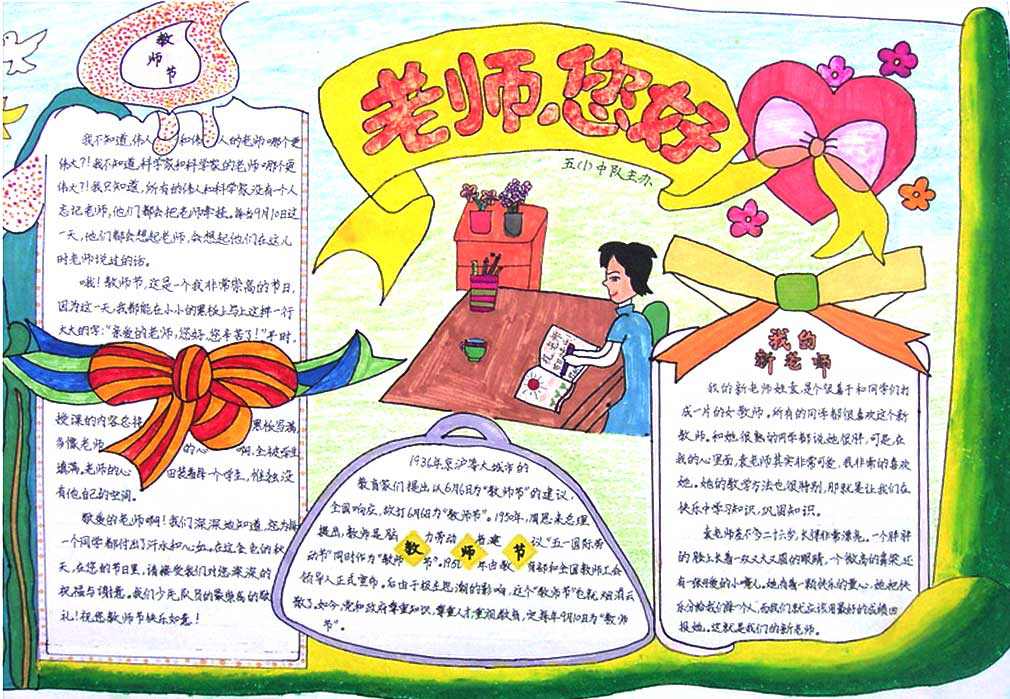 教师节
老师,您好
五(1)中队主办
我不知道,伟人 和伟 人的老师哪个更
伟大?!我不知道,科学家和科学家的老师哪个更
伟大?!我只知道,所有的伟人和科学家没有一个人
忘记老师,他们都会把老师牵挂。每当9月10日这
一天,他们都会想起老师,会想起他们在这儿
时老师说过的话。
哦!教师节,这是一个我非常崇高的节日,
因为这一天,我都能在小小的黑板上写上这样一行
大大的字:“亲爱的老师,您好,您辛苦了!”
授课的内容总将 黑板写满
多像老师 的心 啊,全被学生
填满。老师的心 田装着每一个学生,惟独没
有他自己的空间。
敬爱的老师啊!我们深深地知道,您为每
一个同学都付出了汗水和心血。在这金色的秋
天,在您的节日里,请接受我们对您深深的
祝福与谢意。我们少先队员的最崇高的敬
礼!祝您教师节快乐如意!
1936年京沪等大城市的
教育家们提出以6月6日为“教师节”的建议,
全国响应,故打6月6日为“教师节”。1950年,周恩来总理
提出,教师是脑 力劳动 者,建 议“五一国际劳
动节”同时作为“教师 节”。1951 年由教 育部和全国教师工会
领导人正式宣布。后由于极左思潮的影响,这个“教师节”也就烟消云
散了。如今,党和政府尊重知识,尊重人才,重视教育,定每年9月10日为“教师
节”。
教师节
我的
新老师
我的新老师姓袁,是个很善于和同学们打
成一片的女教师。所有的同学都很喜欢这个新
教师。和她很熟的同学都说她很胖,可是,在
我的心里面,袁老师其实非常可爱,我非常的喜欢
她。她的教学方法也很特别,那就是让我们在
快乐中学习知识,巩固知识。
袁老师差不多二十六岁,长得非常漂亮。一个胖胖
的脸上长着一双大大圆的眼睛,一个微高的鼻梁,还
有一张能说的小嘴儿。她有一颗快乐的童心,她把快
乐分给我们每一个人,而我们就应该用最好的成绩回
报她。这就是我们的新老师。